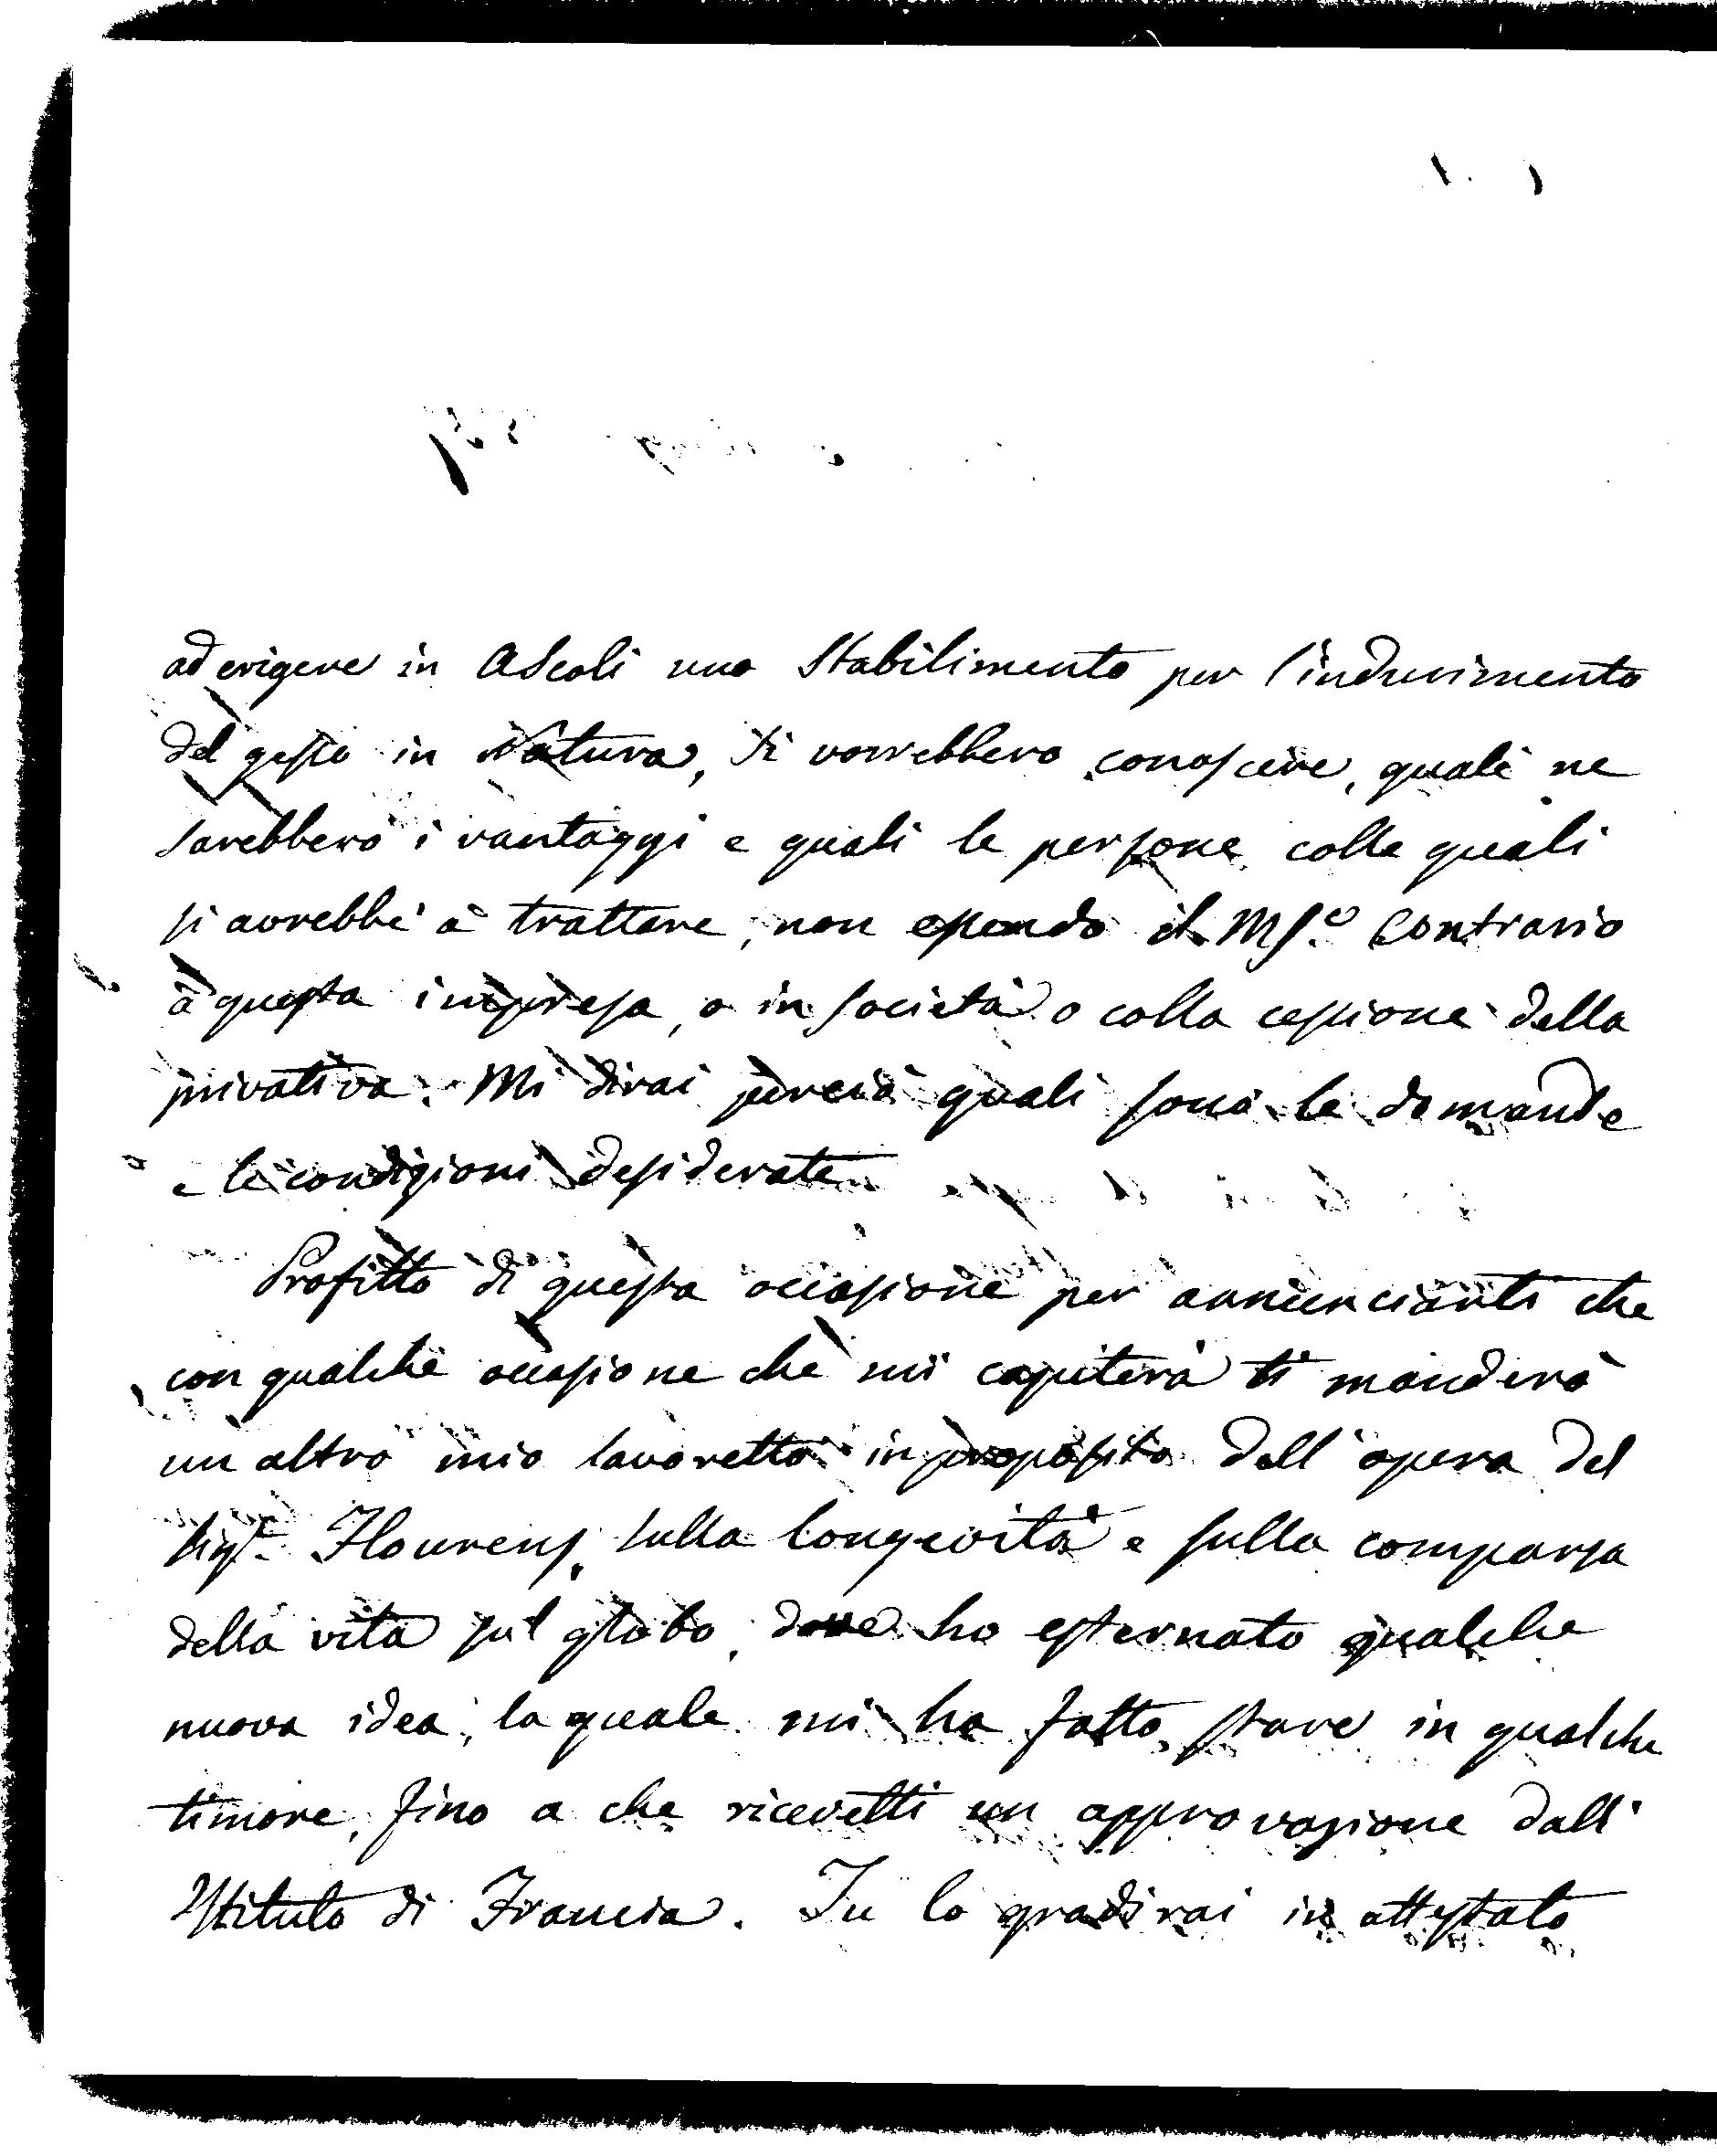 ad erigere in Ascoli uno Stabilimento per l'indurimento
del gesso in Natura, si vorrebbero conoscere, quali ne
sarebbero i vantaggi e quali le persone colle quali
si avrebbe a trattare, non essendo il contrario
a questa impresa, o in società o colla cessione della
privativa. Mi dirai perciò quali sono le domande
e le condizioni desiderate.
Profitto di questa occasione per annunciarti che
con qualche occasione che mi capiterà ti manderò
un altro mio lavoretto in proposito dell'opera del
Sigr. Flourens, sulla longevità e sulla comparsa
della vita sul globo, dove ho esternato qualche
nuova idea, la quale mi ha fatto stare in qualche
timore, fino a che ricevetti un approvazione dall'
Istituto di Francia. Tu lo gradirai in attestato